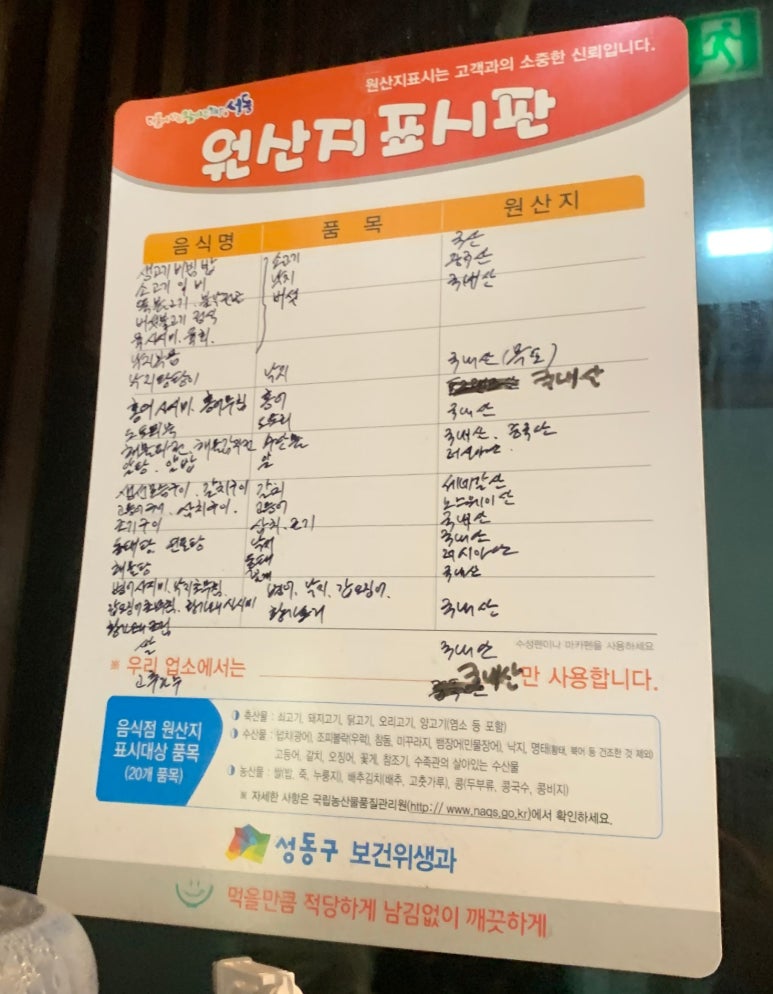 원산지표시는 고객과의 소중한 신뢰입니다.
성동
원산지 표시판
음식명 품목 원산지
생고기 비빔밥 소고기 국산
낙지
버섯 국내산
육사시미. 육회.
낙지탕탕이 낙지 국내산 (목포)
홍어 사시미. 홍어무침 홍어 국내산
국내산
도토리 국내산. 중국산
알탕. 알밥 알
생선모듬구이. 갈치구이 갈치 세네갈산
고등어구이. 삼치구이. 고등어 노르웨이산
조기구이 삼치. 조기 국내산
동태탕 연포탕 낙지 국내산
해물탕 동태 러시아산
꽃게 국내산
병어, 낙지, 갑오징어.
국내산
쌀 국내산
수성펜이나 마카펜을 사용하세요
※ 우리 업소에서는 만 사용합니다.
고추가루 국내산
음식점 원산지
표시대상 품목
(20개 품목)
축산물 : 쇠고기, 돼지고기, 닭고기, 오리고기, 양고기(염소 등 포함)
수산물 : 넙치(광어), 조피볼락(우럭), 참돔, 미꾸라지, 뱀장어(민물장어), 낙지, 명태(황태, 북어 등 건조한 것 제외)
고등어, 갈치, 오징어, 꽃게, 참조기, 수족관의 살아있는 수산물
농산물 : 쌀(밥, 죽, 누룽지), 배추김치(배추, 고춧가루), 콩(두부류, 콩국수, 콩비지)
※ 자세한 사항은 국립농산물품질관리원(http:// www.naqs.go.kr)에서 확인하세요.
성동구 보건위생과
먹을만큼 적당하게 남김없이 깨끗하게